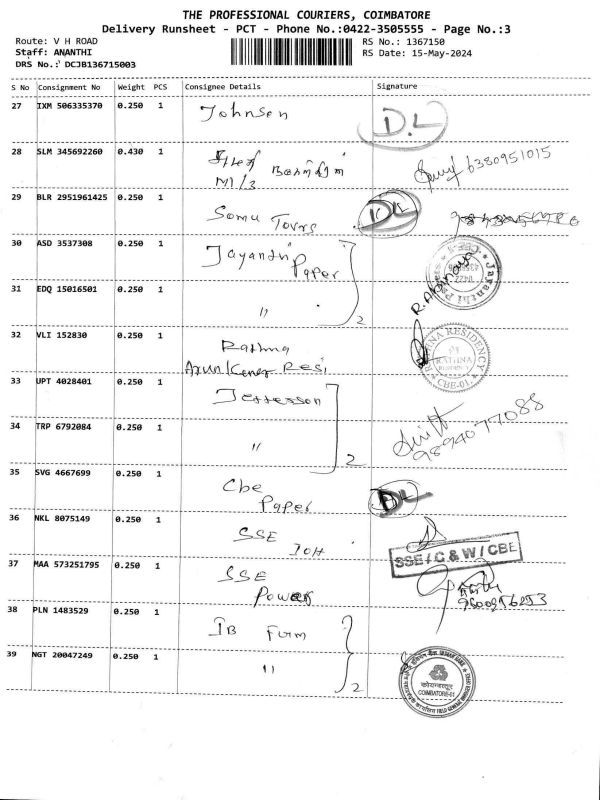 THE PROFESSIONAL COURIERS, COIMBATORE
Delivery Runsheet - PCT - Phone No.:0422-3505555 - Page No.:3
Route: V H ROAD
RS No.: 1367150
Staff: ANANTHI
RS Date: 15-May-2024
DRS No.: DCJB136715003
S No Consignment No Weight PCS Consignee Details Signature
27 IXM 506335370 0.250 1 Johnson D.L
28 SLM 345692260 0.430 1
M1/3 6380951015
29 BLR 2951961425 0.250 1 Somu Tours DL
30 ASD 3537308 0.250 1 Jayanthi Paper
31 EDQ 15016501 0.250 1 " 2
R. Abinaya
32 VLI 152830 0.250 1 Rathna
Resi
RATHNA RESIDENCY
RATHNA
RESIDENCY
CBE-01.
33 UPT 4028401 0.250 1 Jefferson
34 TRP 6792084 0.250 1 " 2
9894077088
35 SVG 4667699 0.250 1 Cbe
Paper DL
36 NKL 8075149 0.250 1 SSE
SSE / C & W / CBE
37 MAA 573251795 0.250 1 SSE
Power
38 PLN 1483529 0.250 1 IB Furm
39 NGT 20047249 0.250 1 " 2
COIMBATORE-01